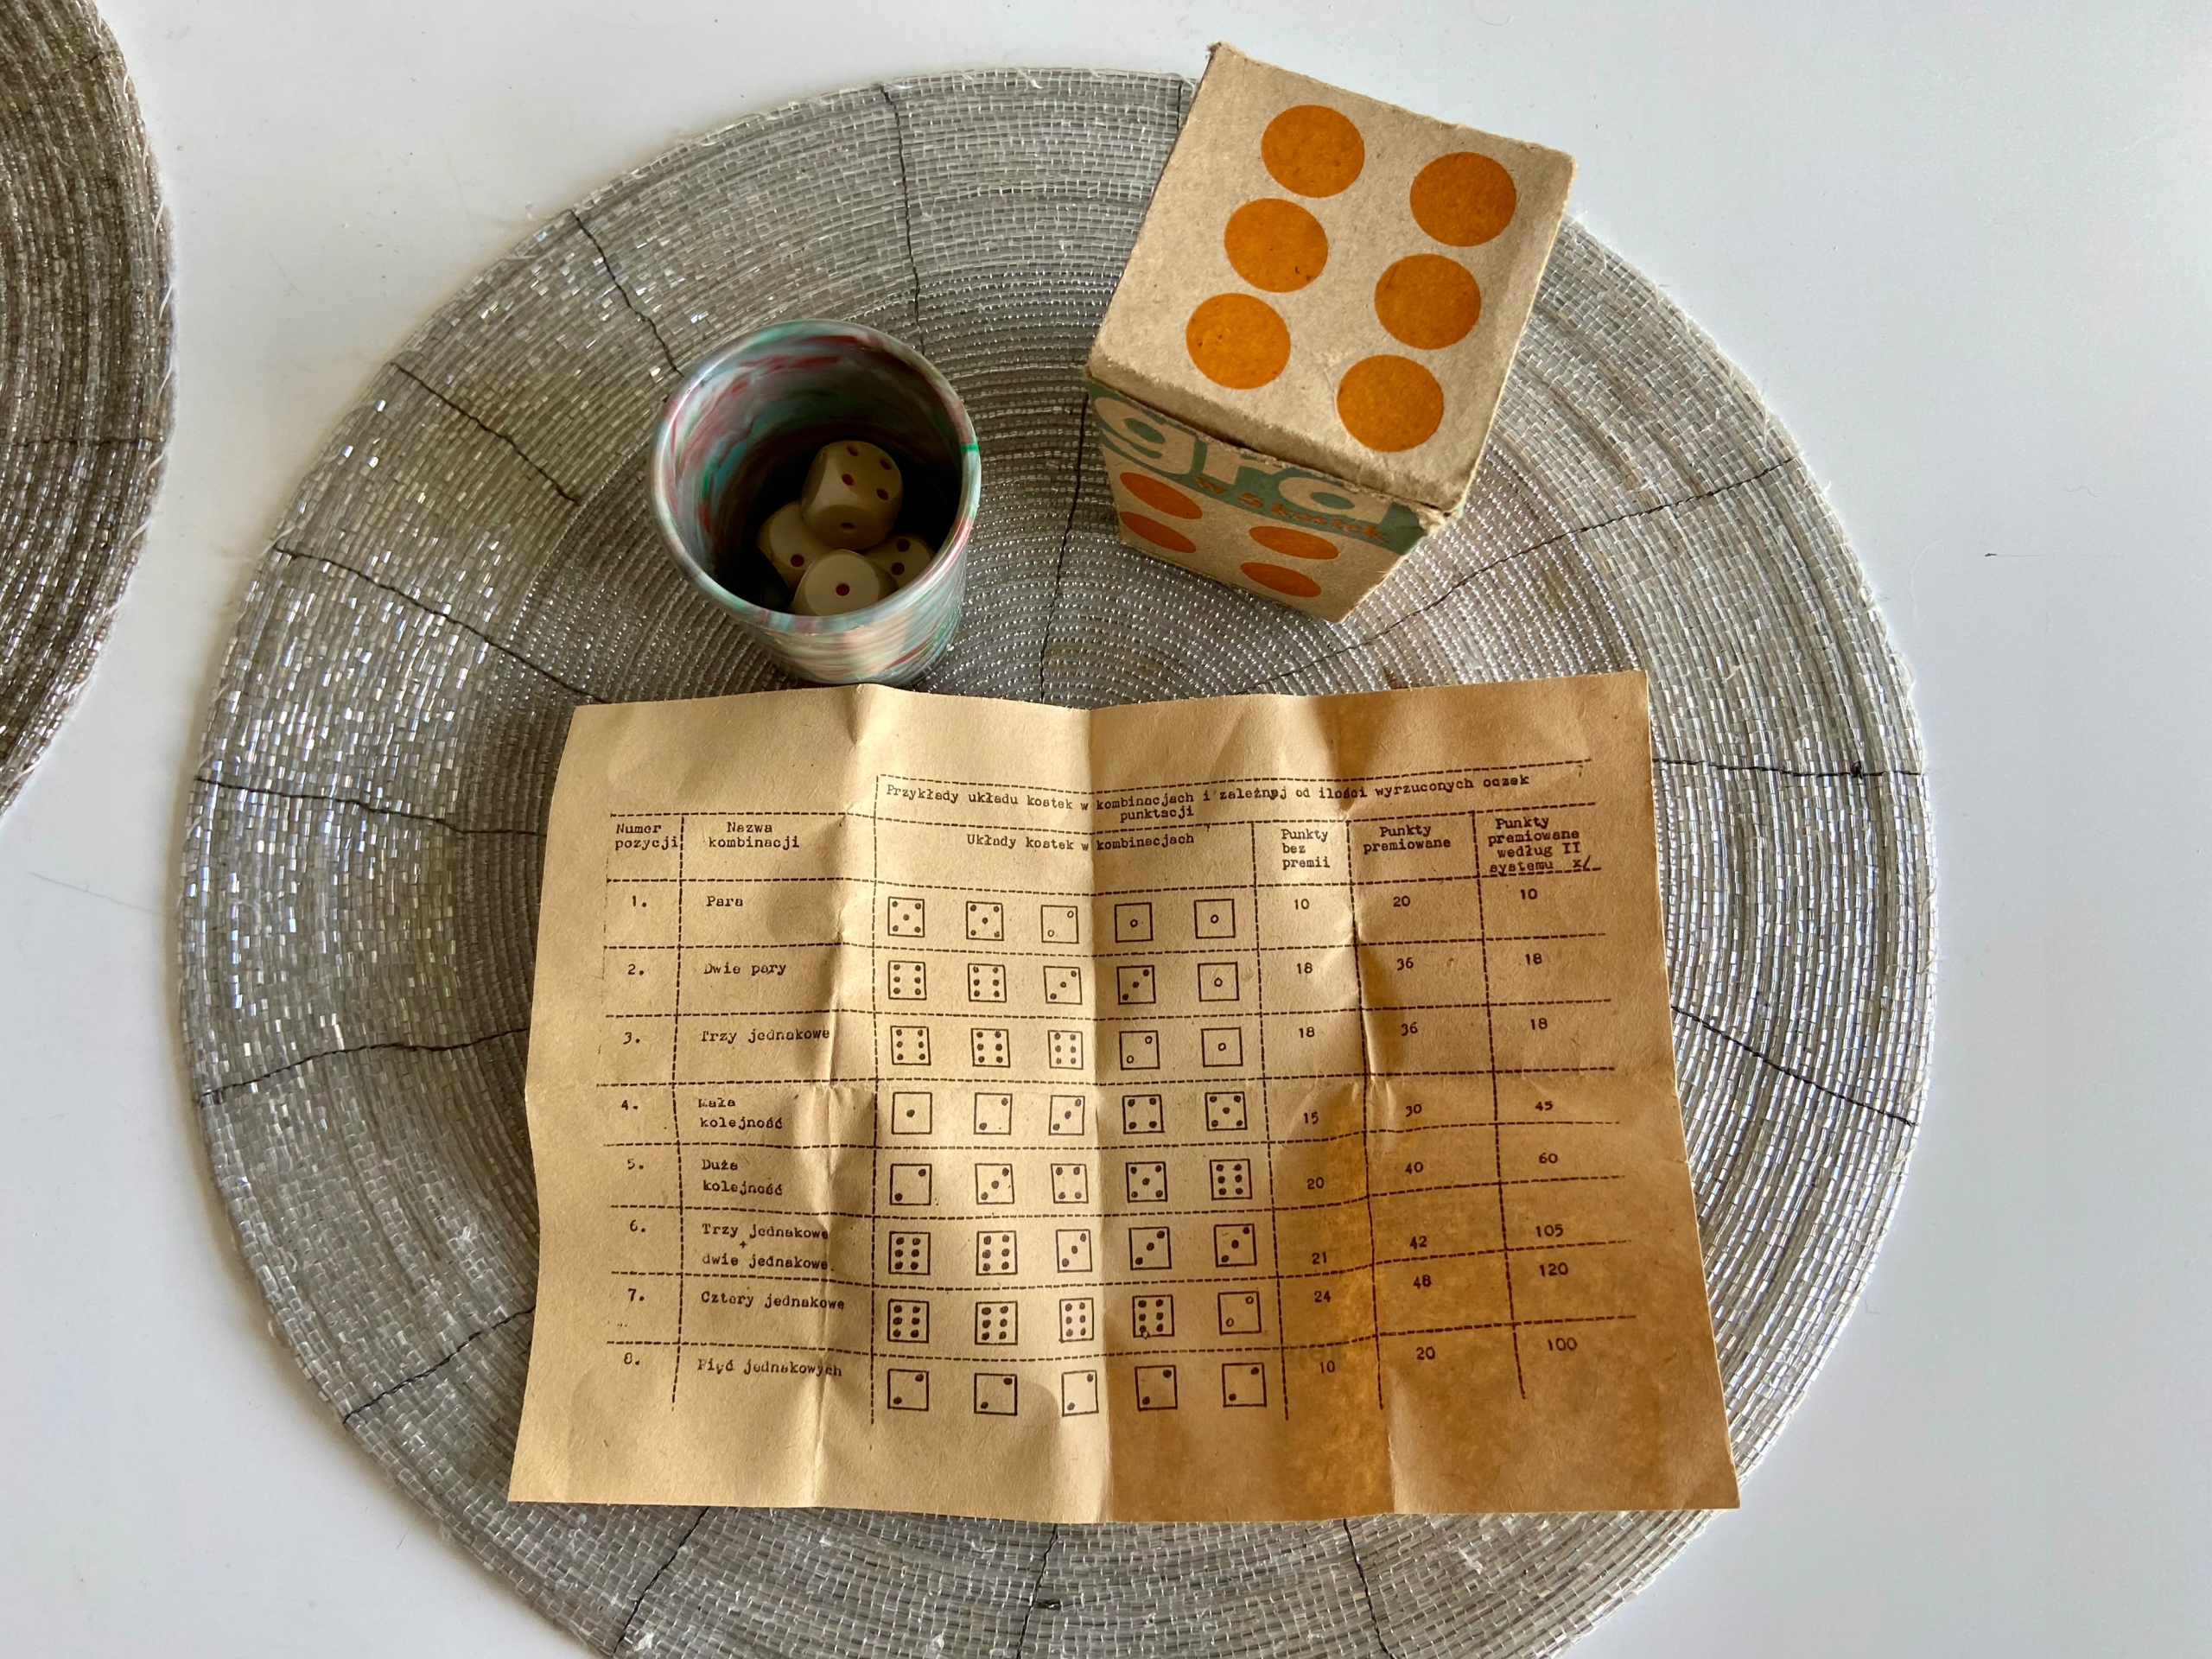 gra
w 5 kostek
Przykłady układu kostek w kombinacjach i zależnej od ilości wyrzuconych oczek
punktacji
Numer pozycji
Nazwa kombinacji
Układy kostek w kombinacjach
Punkty bez premii
Punkty premiowane
Punkty premiowane według II systemu x/
1. Para 10 20 10
2. Dwie pary 18 36 18
3. Trzy jednakowe 18 36 18
4. Mała kolejność 15 30 45
5. Duża kolejność 20 40 60
6. Trzy jednakowe + dwie jednakowe 21 42 105
7. Cztery jednakowe 24 48 120
8. Pięć jednakowych 10 20 100